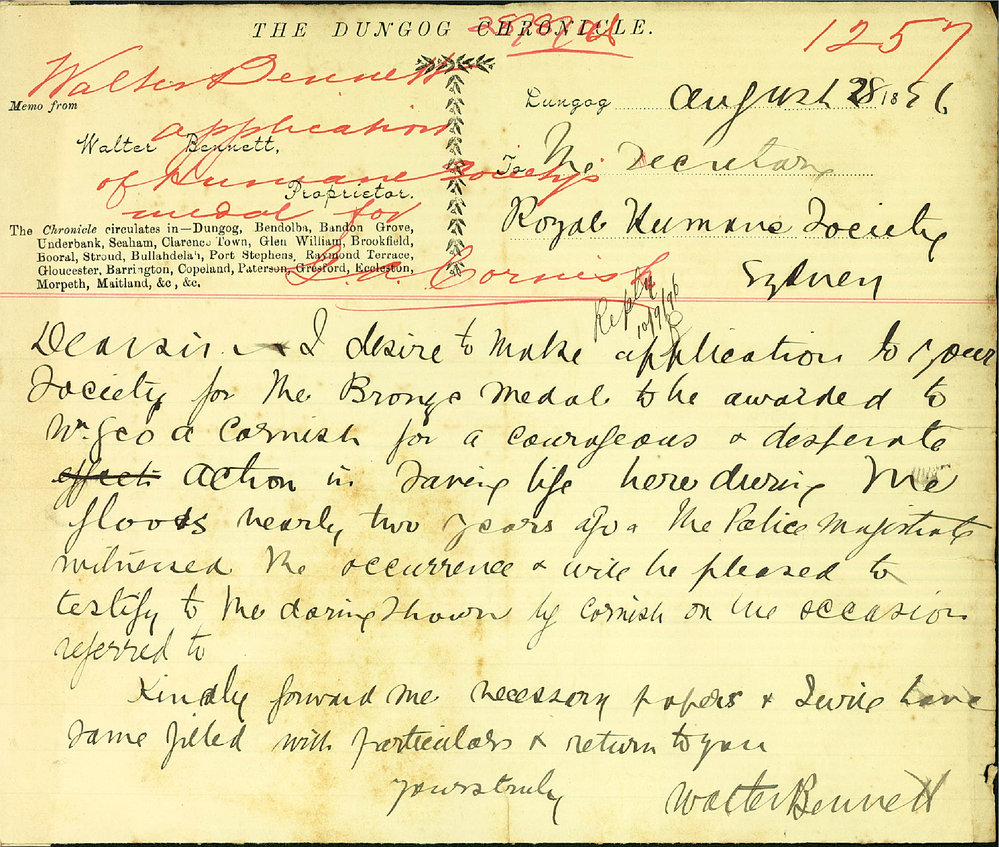 THE DUNGOG CHRONICLE.
1257
Walter Bennett
application
of Humane Society's
medal for
G. A. Cornish
Memo from
Walter Bennett,
Proprietor.
The Chronicle circulates in—Dungog, Bendolba, Bandon Grove,
Underbank, Seaham, Clarence Town, Glen William, Brookfield,
Booral, Stroud, Bullahdelah, Port Stephens, Raymond Terrace,
Gloucester, Barrington, Copeland, Paterson, Gresford, Eccleston,
Morpeth, Maitland, &c, &c.
Dungog August 28 1896
To The Secretary
Royal Humane Society
Sydney
Reply
10/9/96
Dear sir. I desire to make application to your
Society for the Bronze Medal to be awarded to
Mr. Geo A Cornish for a courageous & desperate
effect action in saving life here during the
floods nearly two years ago. The Police Magistrate
witnessed the occurrence & will be pleased to
testify to the daring shown by Cornish on the occasion
referred to
Kindly forward me necessary papers & I will have
same filled with particulars & return to you
yours truly
Walter Bennett